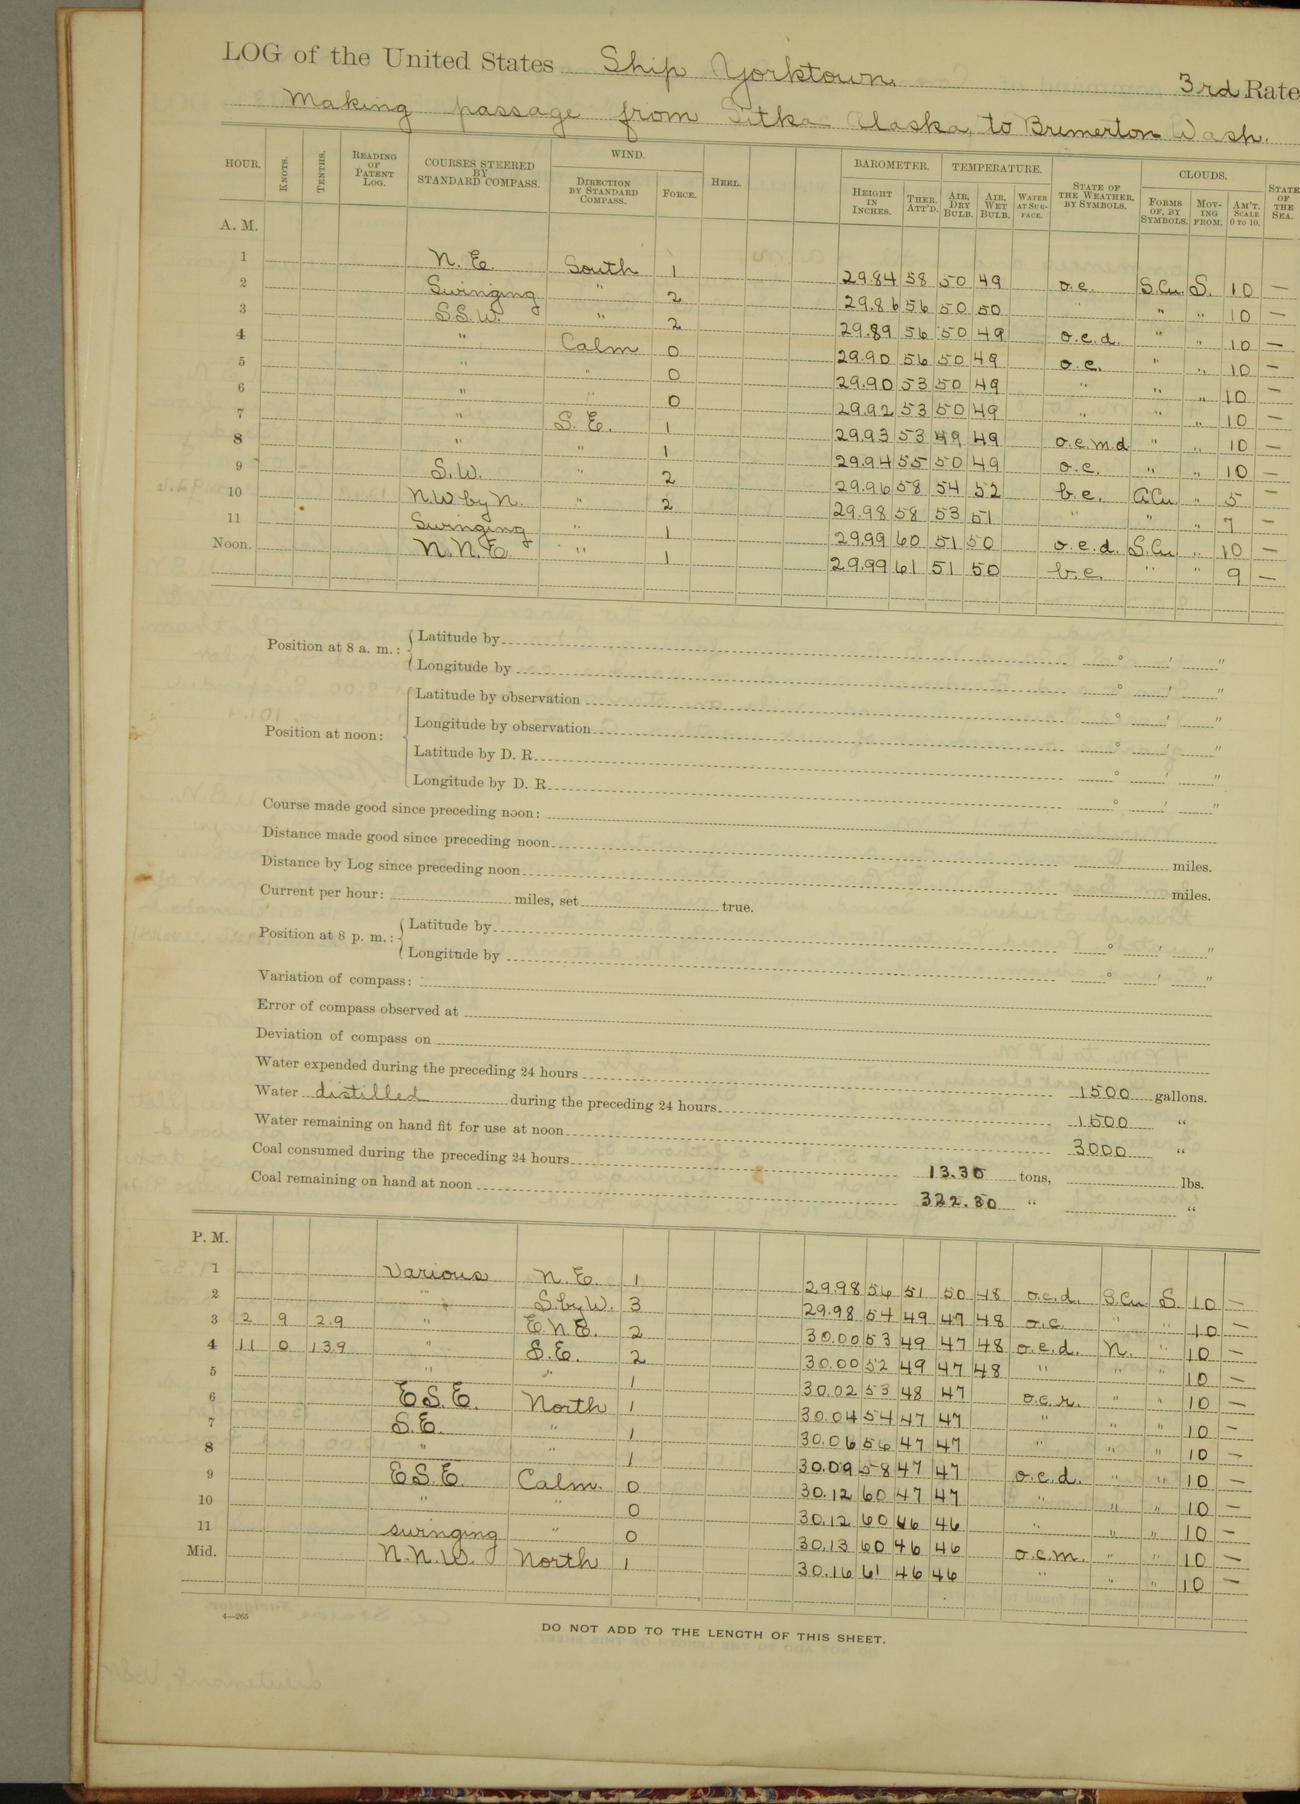 LOG of the United States Ship Yorktown, 3rd Rate
Making passage from Sitka Alaska, to Bremerton Wash.
HOUR. KNOTS. TENTHS. READING OF PATENT LOG. COURSES STEERED BY STANDARD COMPASS. WIND. DIRECTION BY STANDARD COMPASS. FORCE. HEEL. BAROMETER. HEIGHT IN INCHES. THER. ATT'D. TEMPERATURE. AIR, DRY BULB. AIR, WET BULB. WATER AT SURFACE. STATE OF THE WEATHER, BY SYMBOLS. CLOUDS. FORMS OF, BY SYMBOLS. MOVING FROM. AM'T. SCALE 0 TO 10. STATE OF THE SEA.
A. M.
1 N. E. South 1 29.84 58 50 49 o.c. S.Cu. S. 10 —
2 Swinging " 2 29.86 56 50 50 " " " 10 —
3 S.S.W. " 2 29.89 56 50 49 o.c.d. " " 10 —
4 " Calm 0 29.90 56 50 49 o.c. " " 10 —
5 " " 0 29.90 53 50 49 " " " 10 —
6 " " 0 29.92 53 50 49 " " " 10 —
7 " S. E. 1 29.93 53 49 49 o.c.m.d " " 10 —
8 " " 1 29.94 55 50 49 o.c. " " 10 —
9 S.W. " 2 29.96 58 54 52 b.c. A.Cu. " 5 —
10 N.W. by N. " 2 29.98 58 53 51 " " " 7 —
11 Swinging " 1 29.99 60 51 50 o.c.d. S.Cu. " 10 —
Noon. N.N.E. " 1 29.99 61 51 50 b.c. " " 9 —
Position at 8 a. m.: Latitude by ° ' "
Longitude by ° ' "
Position at noon: Latitude by observation ° ' "
Longitude by observation ° ' "
Latitude by D. R. ° ' "
Longitude by D. R. ° ' "
Course made good since preceding noon:
Distance made good since preceding noon miles.
Distance by Log since preceding noon miles.
Current per hour: miles, set true.
Position at 8 p. m.: Latitude by ° ' "
Longitude by ° ' "
Variation of compass:
Error of compass observed at
Deviation of compass on
Water expended during the preceding 24 hours 1500 gallons.
Water distilled during the preceding 24 hours 1500 "
Water remaining on hand fit for use at noon 3000 "
Coal consumed during the preceding 24 hours 13.30 tons, lbs.
Coal remaining on hand at noon 322.30 " "
P. M.
1 Various N. E. 1 29.98 56 51 50 48 o.c.d. S.Cu. S. 10 —
2 " S. by W. 3 29.98 54 49 47 48 o.c. " " 10 —
3 2 9 2.9 " E.N.E. 2 30.00 53 49 47 48 o.c.d. N. " 10 —
4 11 0 13.9 " S.E. 2 30.00 52 49 47 48 " " " 10 —
5 " " 1 30.02 53 48 47 o.c.r. " " 10 —
6 E.S.E. North 1 30.04 54 47 47 " " " 10 —
7 S.E. " 1 30.06 56 47 47 " " " 10 —
8 " " 1 30.09 58 47 47 o.c.d. " " 10 —
9 E.S.E. Calm. 0 30.12 60 47 47 " " " 10 —
10 " " 0 30.12 60 46 46 " " " 10 —
11 swinging " 0 30.13 60 46 46 o.c.m. " " 10 —
Mid. N.N.W. North 1 30.16 61 46 46 " " " 10 —
4—265
DO NOT ADD TO THE LENGTH OF THIS SHEET.